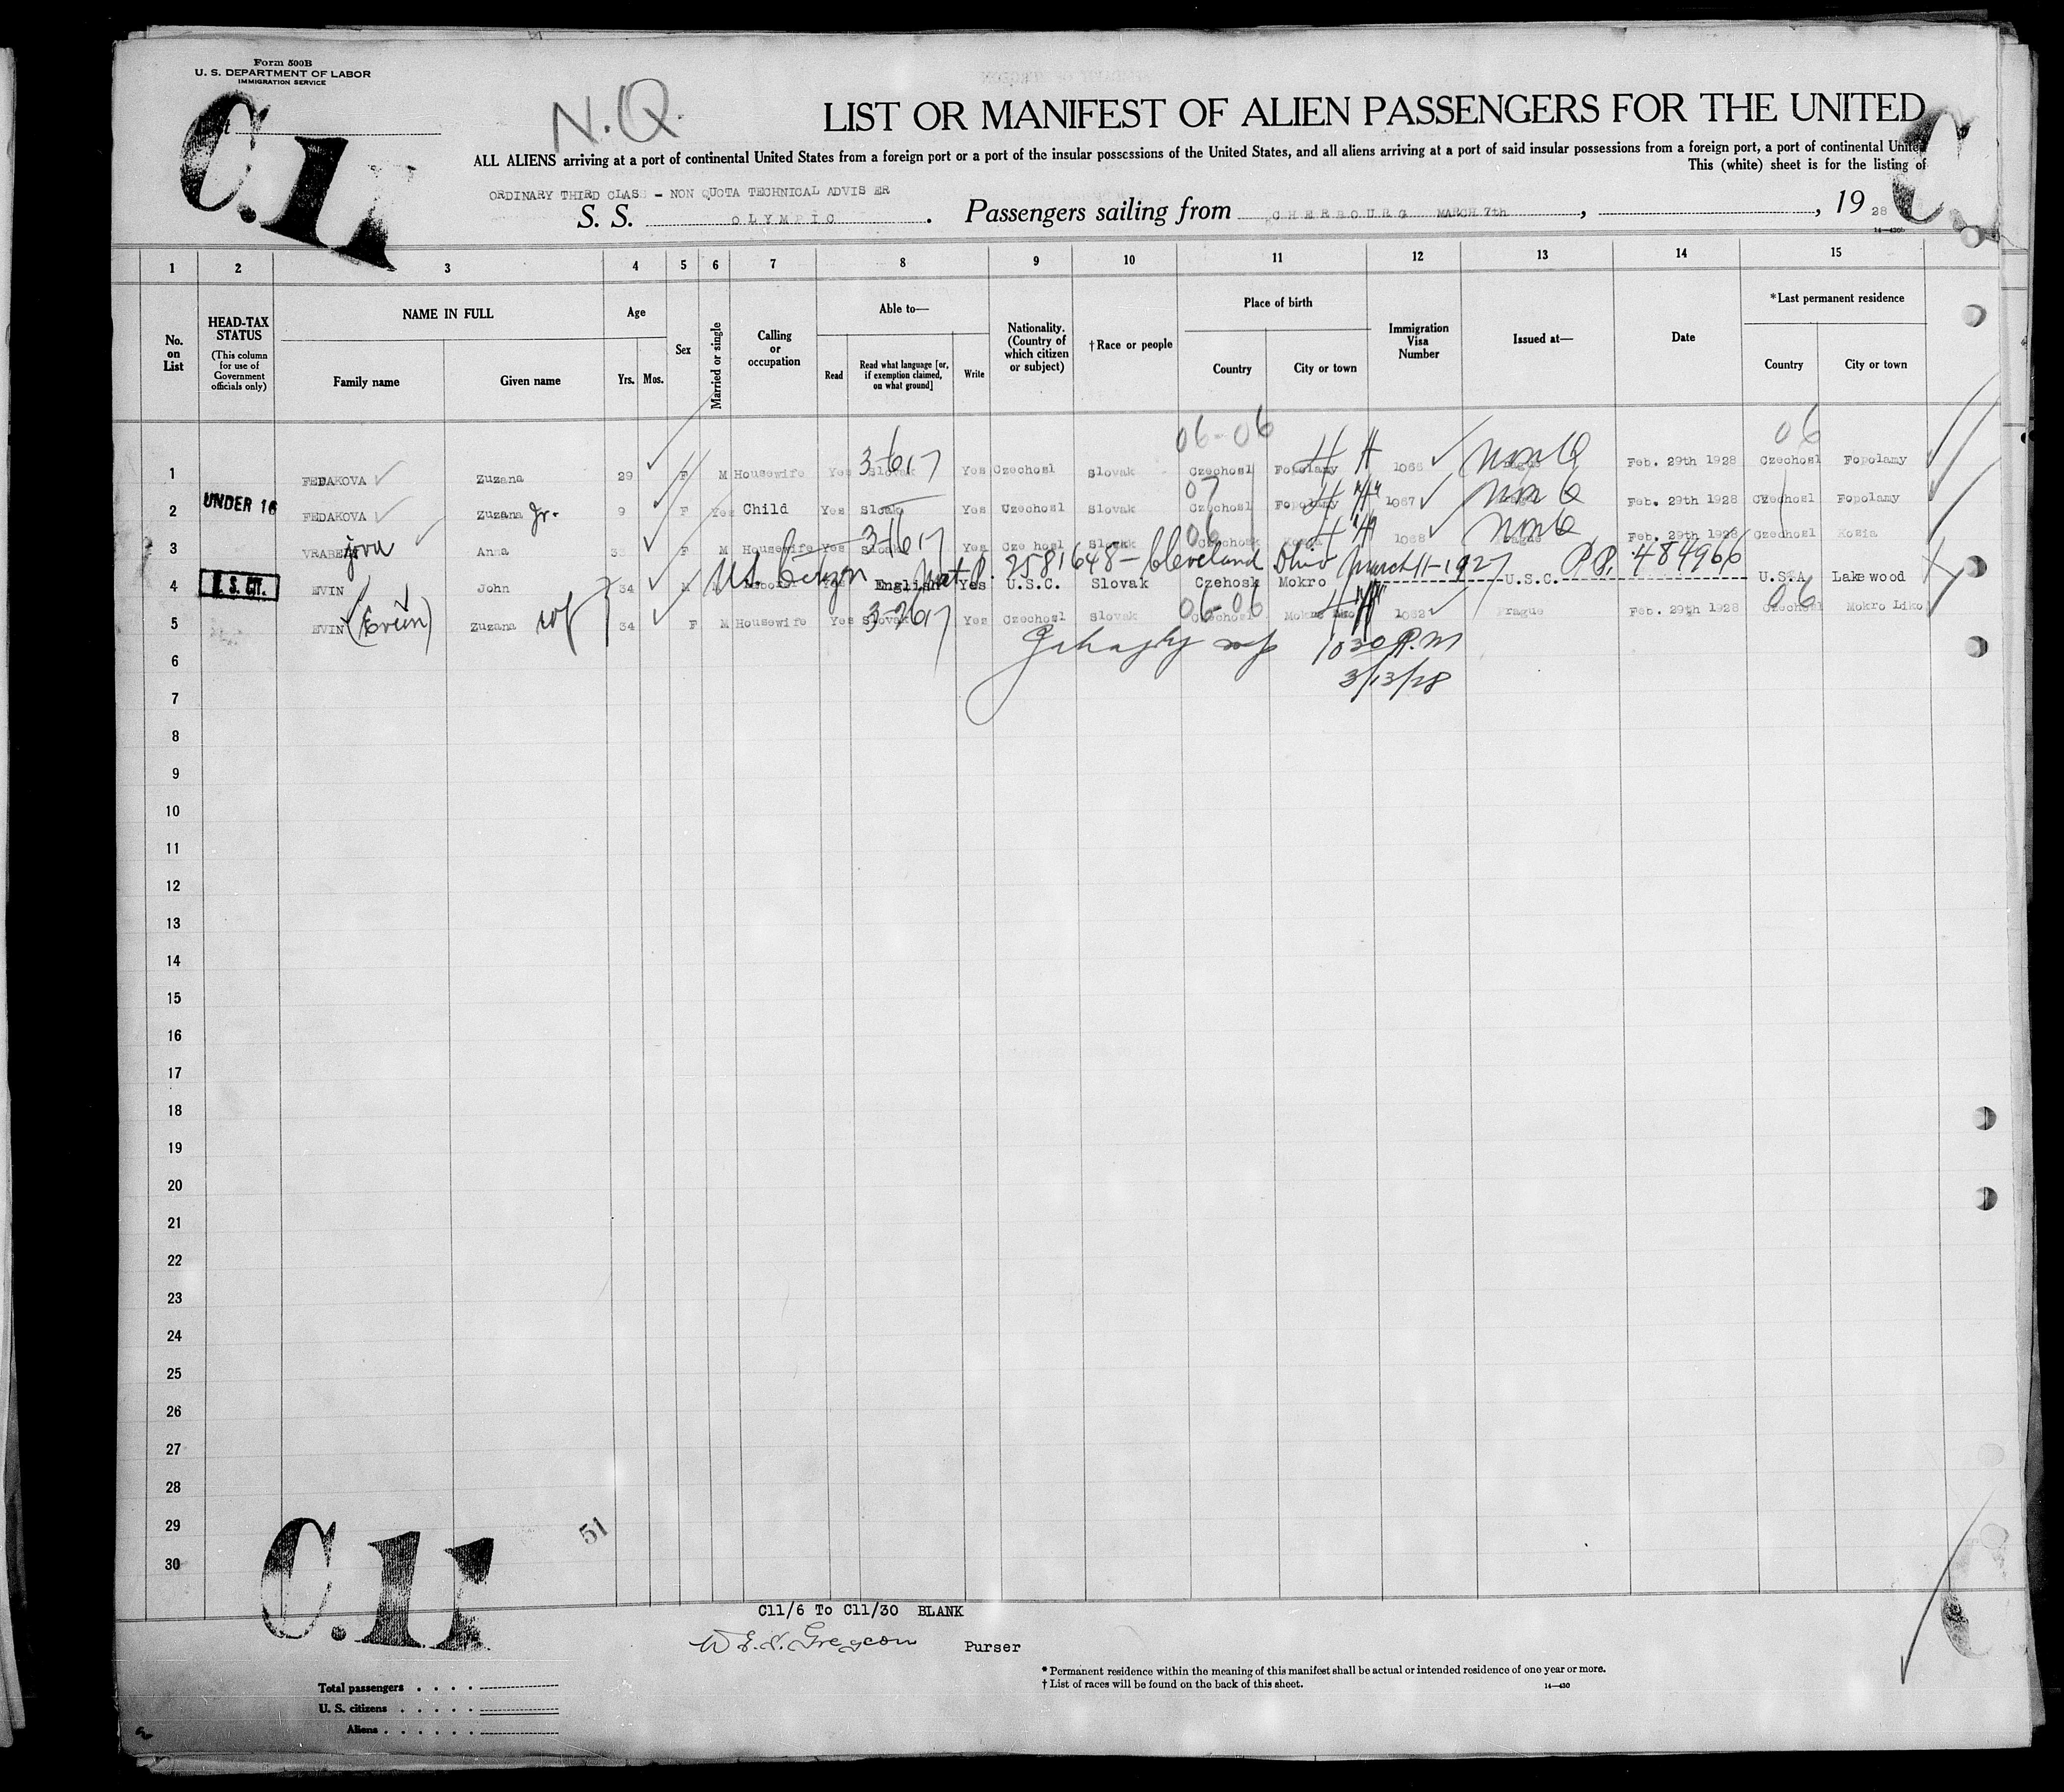 Form 500B
U. S. DEPARTMENT OF LABOR
IMMIGRATION SERVICE
C.11
N.Q.
LIST OR MANIFEST OF ALIEN PASSENGERS FOR THE UNITED
ALL ALIENS arriving at a port of continental United States from a foreign port or a port of the insular possessions of the United States, and all aliens arriving at a port of said insular possessions from a foreign port, a port of continental United
This (white) sheet is for the listing of
ORDINARY THIRD CLASS - NON QUOTA TECHNICAL ADVISER
S. S. OLYMPIC. Passengers sailing from CHERBOURG MARCH 7th, , 1928
14-430
1 2 3 4 5 6 7 8 9 10 11 12 13 14 15
No. on List
HEAD-TAX STATUS (This column for use of Government officials only)
NAME IN FULL Family name Given name
Age Yrs. Mos.
Sex
Married or single
Calling or occupation
Able to— Read Read what language [or, if exemption claimed, on what ground] Write
Nationality. (Country of which citizen or subject)
†Race or people
Place of birth Country City or town
Immigration Visa Number
Issued at—
Date
*Last permanent residence Country City or town
06-06 06
1 FEDAKOVA Zuzana 29 F M Housewife Yes Slovak Yes Czechosl Slovak Czechosl Fopolamy Feb. 29th 1928 Czechosl Fopolamy
07
2 UNDER 16 FEDAKOVA Zuzana Jr. 9 F Yes Child Yes Yes Czechosl Slovak Czechosl 1067 Feb. 29th 1928 Czechosl Fopolamy
06
3 Anna F M Housewife Yes Yes Slovak 1068 Feb. 29th 1928 Czechosl Kozia
U.S. Citizen 2581648 - Cleveland Ohio March 11-1927 P.P. 484966
4 U. S. CIT. EVIN John 34 M Yes English Yes U.S.C. Slovak Czehosk Mokro U.S.C. U.S.A. Lakewood
06-06 06
5 EVIN Zuzana wf 34 F M Housewife Yes Slovak Yes Czechosl Slovak Czechosl 1062 Prague Feb. 29th 1928 Czechosl Mokro Liko
6 10 30 P.M
7 3/13/28
8
9
10
11
12
13
14
15
16
17
18
19
20
21
22
23
24
25
26
27
28
29
30
C.11
51
C11/6 To C11/30 BLANK
Purser
* Permanent residence within the meaning of this manifest shall be actual or intended residence of one year or more.
† List of races will be found on the back of this sheet.
14-430
Total passengers
U. S. citizens
Aliens